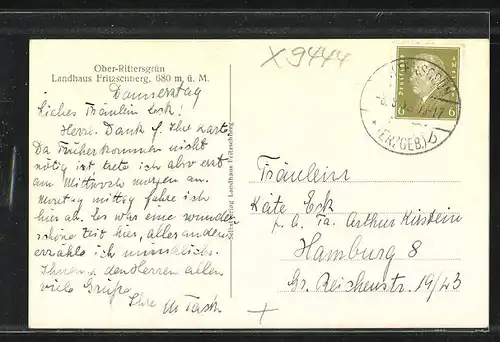 Ober-Rittersgrün
Landhaus Fritzschberg, 680 m ü. M.
Donnerstag
Liches Fräulein Eck!
Herzl. Dank f. Ihre Karte
Da Früherkommen nicht
nötig ist trete ich also erst
am Mittwoch morgen an.
Montag mittag fahre ich
hier ab. Es war eine wunder-
schöne Zeit hier, alles andere
erzähle ich mündlich.
Ihnen u. den Herren allen
viele Grüße
Ihre M Task
Selbstverlag Landhaus Fritzschberg
X 9444
DEUTSCHES
6 6
(ERZGEB.) b
Fräulein
Käte Eck
p. a. Fa. Arthur Kirstein
Hamburg 8
Gr. Reichenstr. 19/23
+